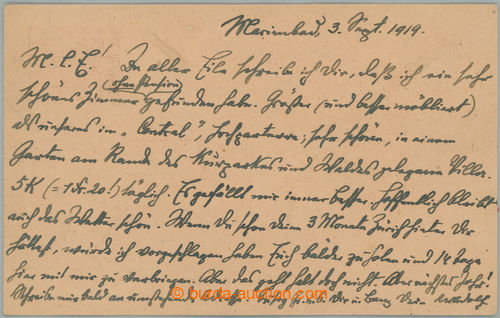 Marienbad, 3. Sept. 1919.
M. L. E.! In aller Eile schreibe ich Dir, daß ich ein sehr
(ohne Pension)
schönes Zimmer gefunden habe. Größer (und besser möbliert)
als unseres im „Central", Hochparterre; sehr schöne, in einem
Garten am Rande des Kurparkes und Waldes gelegene Villa.
5K (= 1 Fr. 20!) täglich. Es gefällt mir immer besser. Hoffentlich bleibt
auch das Wetter schön. Wenn Du schon Deine 3 Monate Zürich hinter Dir
hättest, würde ich vorgeschlagen haben Euch beide zu holen und 14 Tage
hier mit mir zu verbringen. Aber das geht halt doch nicht. Aber nächstes Jahr.
Schreibe mir bald an umstehende Dir u.
burda-auction.com